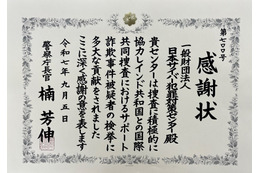 第七〇〇号
感謝状
一般財団法人
日本サイバー犯罪対策センター殿
貴センターは捜査に積極的に
協力しインド共和国との国際
共同捜査におけるサポート
詐欺事件被疑者の検挙に
多大な貢献をされました
ここに深く感謝の意を表します
令和七年九月五日
警察庁長官
楠芳伸